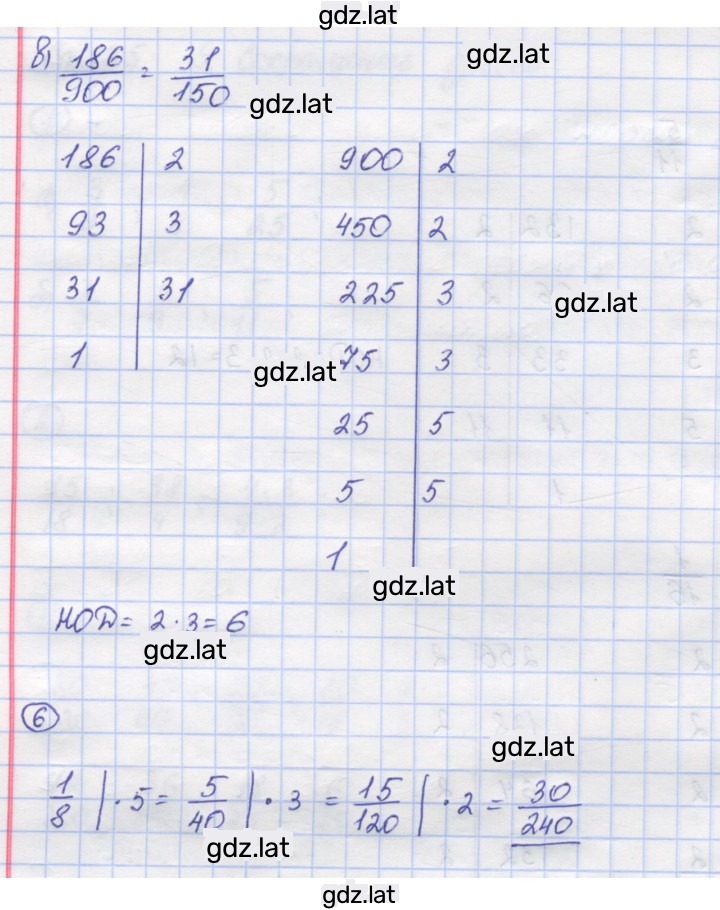 gdz.lat
в) 186/900 = 31/150
gdz.lat
gdz.lat
186 | 2
93 | 3
31 | 31
1 |
900 | 2
450 | 2
225 | 3
75 | 3
25 | 5
5 | 5
1
gdz.lat
gdz.lat
gdz.lat
НОД = 2 · 3 = 6
gdz.lat
6
gdz.lat
1/8 | · 5 = 5/40 | · 3 = 15/120 | · 2 = 30/240
gdz.lat
gdz.lat